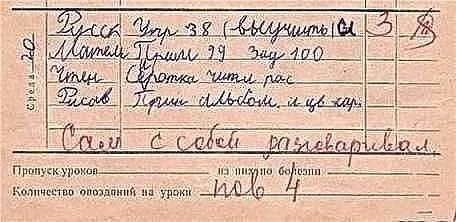 Среда 20
Русск Упр 38 (выучить) 3
Матем Прим 99 Зад 100
Чтен читл рас
Рисов Прин альбом и цв кар.
Сам с собой разговаривал.
Пропуск уроков из них по болезни
Количество опозданий на уроки пов 4